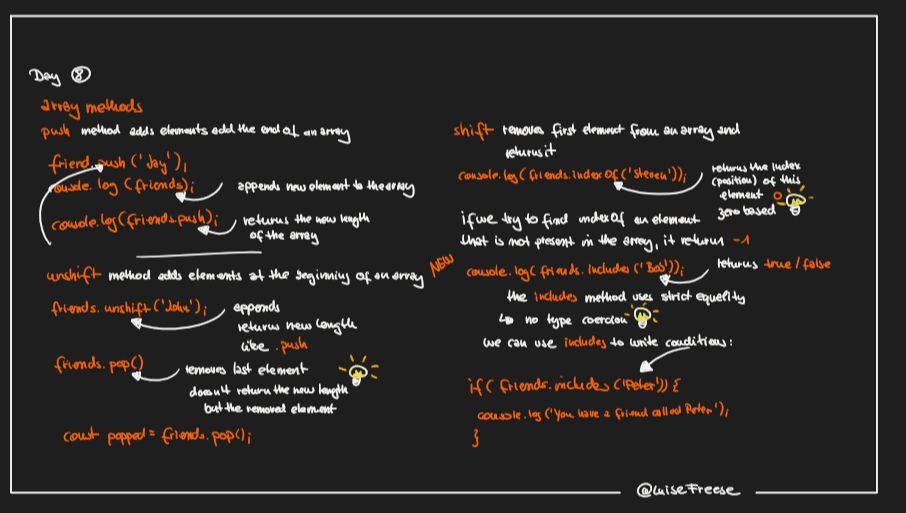 Day 8
array methods
push method adds elements add the end of an array
friend.push ('Jay');
console.log (friends);
appends new element to the array
console.log(friends.push);
returns the new length
of the array
unshift method adds elements at the beginning of an array
friends.unshift ('John');
appends
returns new length
like .push
friends.pop()
removes last element
doesn't return the new length
but the removed element
const popped = friends.pop();
shift removes first element from an array and
returns it
console.log( friends.indexOf ('Steven'));
returns the index
(position) of this
element 0
zero based
if we try to find index of an element
that is not present in the array, it returns -1
NEW
console.log( friends.includes ('Bob'));
returns true / false
the includes method uses strict equality
↳ no type coercion
we can use includes to write conditions:
if ( friends.includes ('Peter')) {
console.log ('You have a friend called Peter');
}
@LuiseFreese